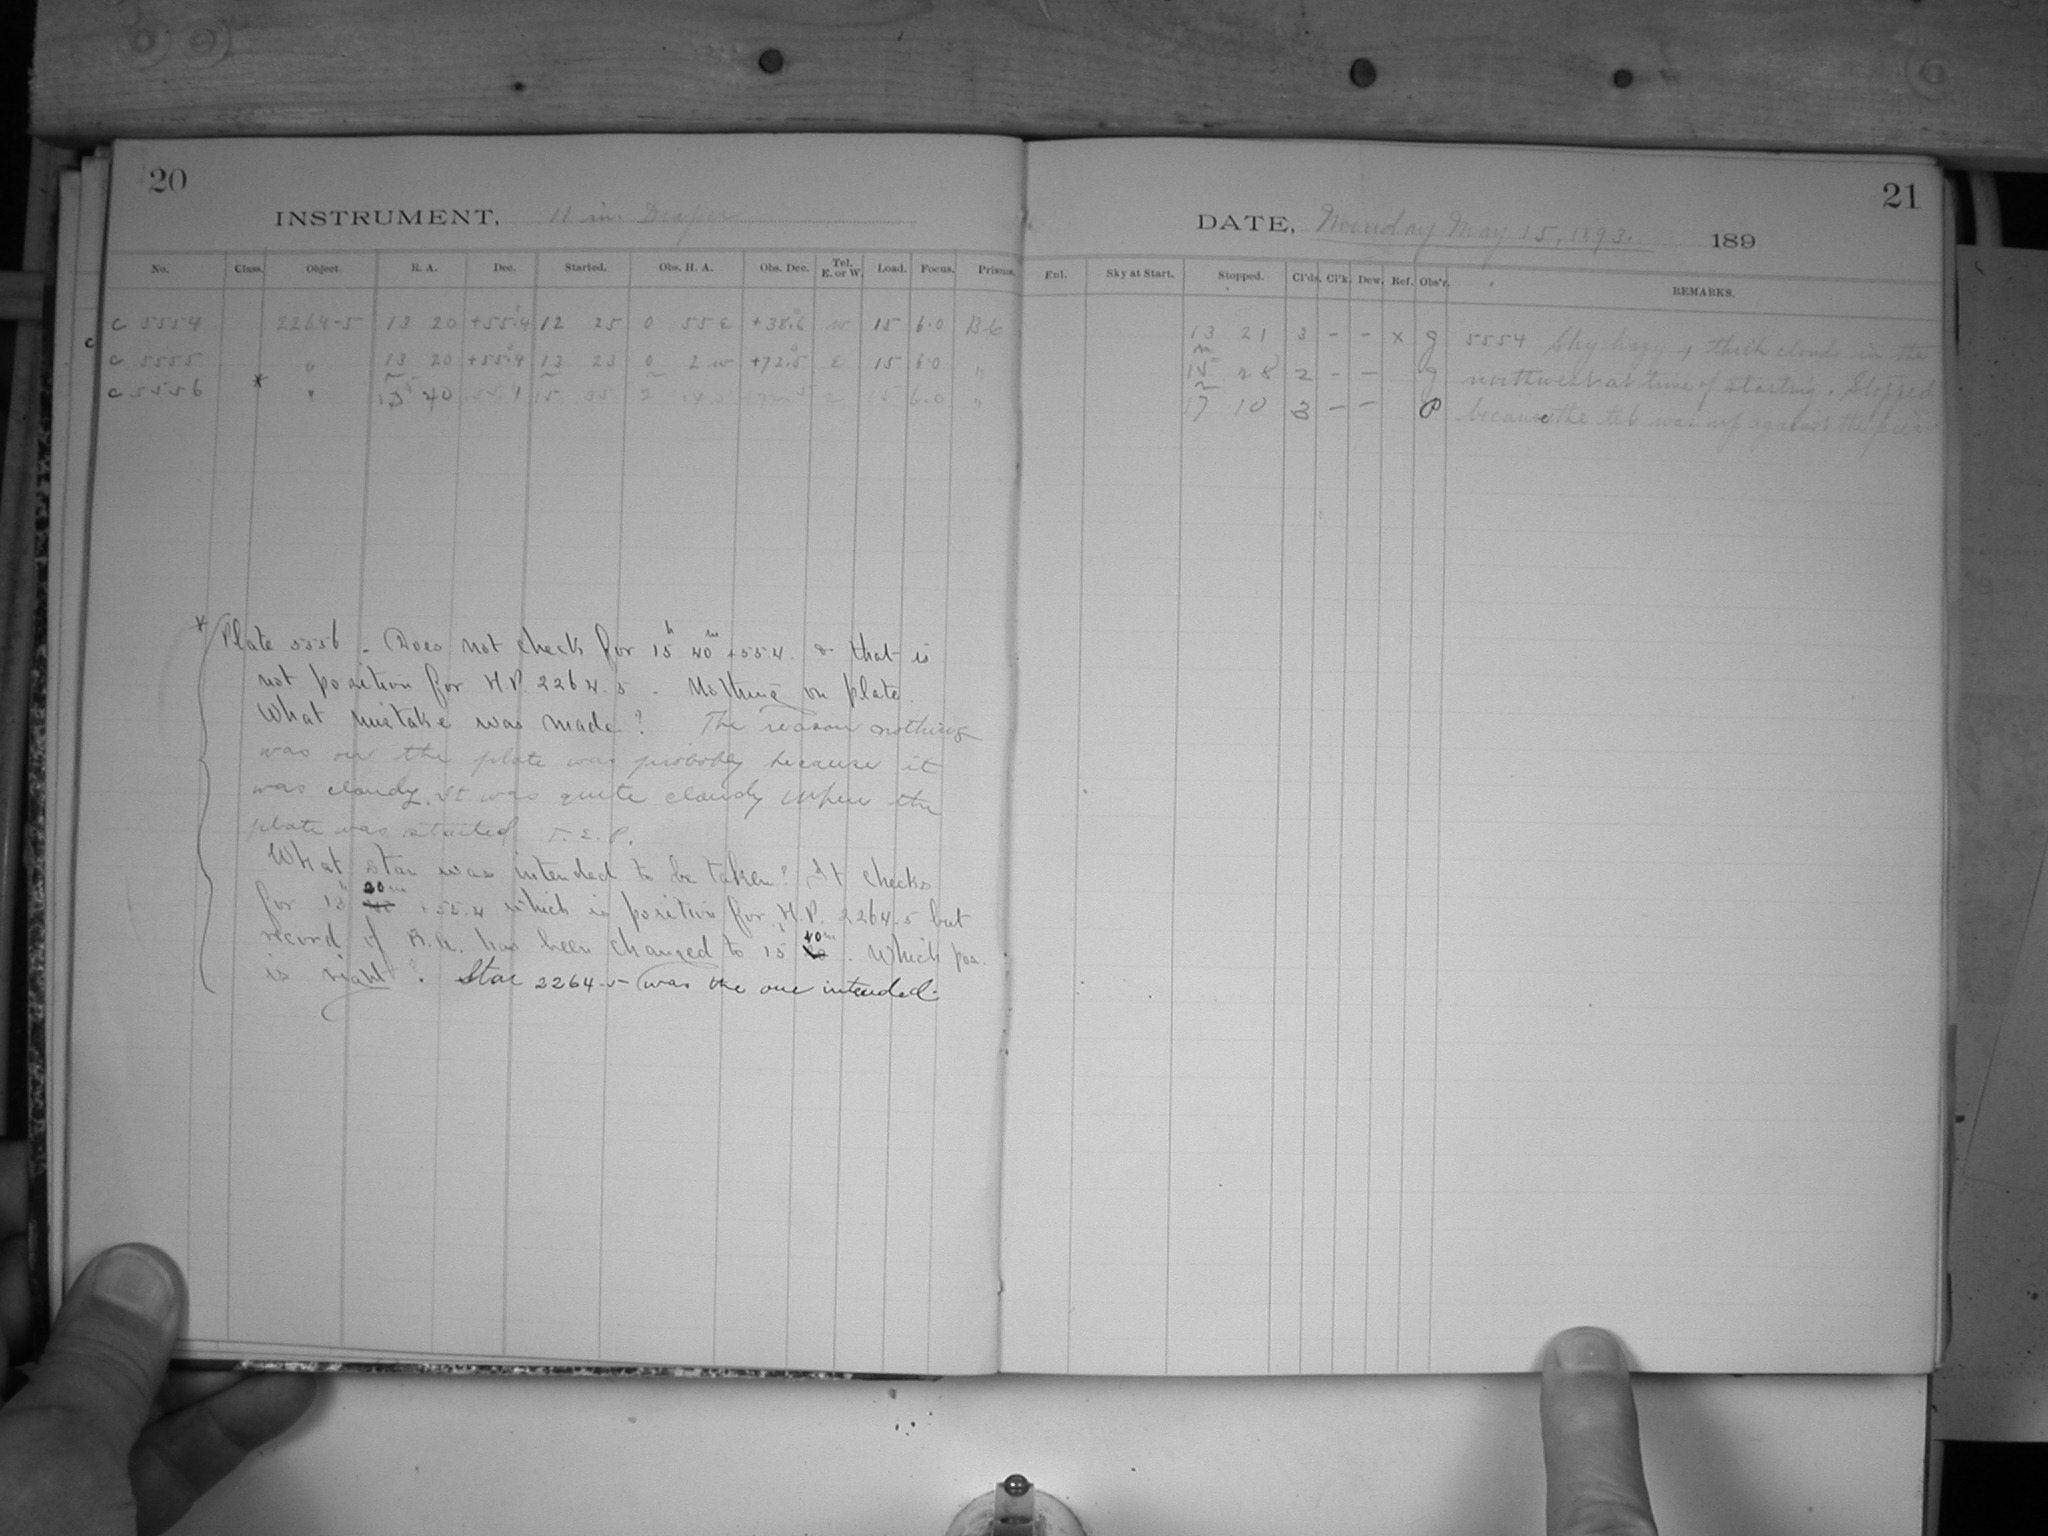 20
INSTRUMENT, 11 in. Draper
No. Class. Object. R. A. Dec. Started. Obs. H. A. Obs. Dec. Tel. E. or W. Load. Focus. Prisms.
c 5554 2264-5 13 20 +55.4 12 25 0 55 E +38.6 w 15 6.0
c 5555 " 13 20 +55.4 13 23 0 2 w +72.5 E 15 6.0 "
c 5556 * " 40 55.4 15 35 2 15 6.0 "
* Plate 5556 - Does not check for 15h 40m +55.4. & that is
not position for H.P. 2264.5 - Nothing on plate.
What mistake was made? The reason nothing
was on the plate was probably because it
was cloudy. It was quite cloudy when the
plate was started T. E. P.
What star was intended to be taken? It checks
for 13h 20m +55.4 which is position for H.P. 2264.5 but
record of R.A. has been changed to 15h 40m. Which pos.
is right? Star 2264-5 was the one intended.
21
DATE, Monday May 15, 1893. 189
Enl. Sky at Start. Stopped. Cl'ds. Cl'k. Dew. Ref. Obs'r. REMARKS.
13 21 3 - - x g 5554 Sky hazy & thick clouds in the
15 28 2 - - g northwest at time of starting. Stopped
17 10 3 - - P because the tel. was up against the pier